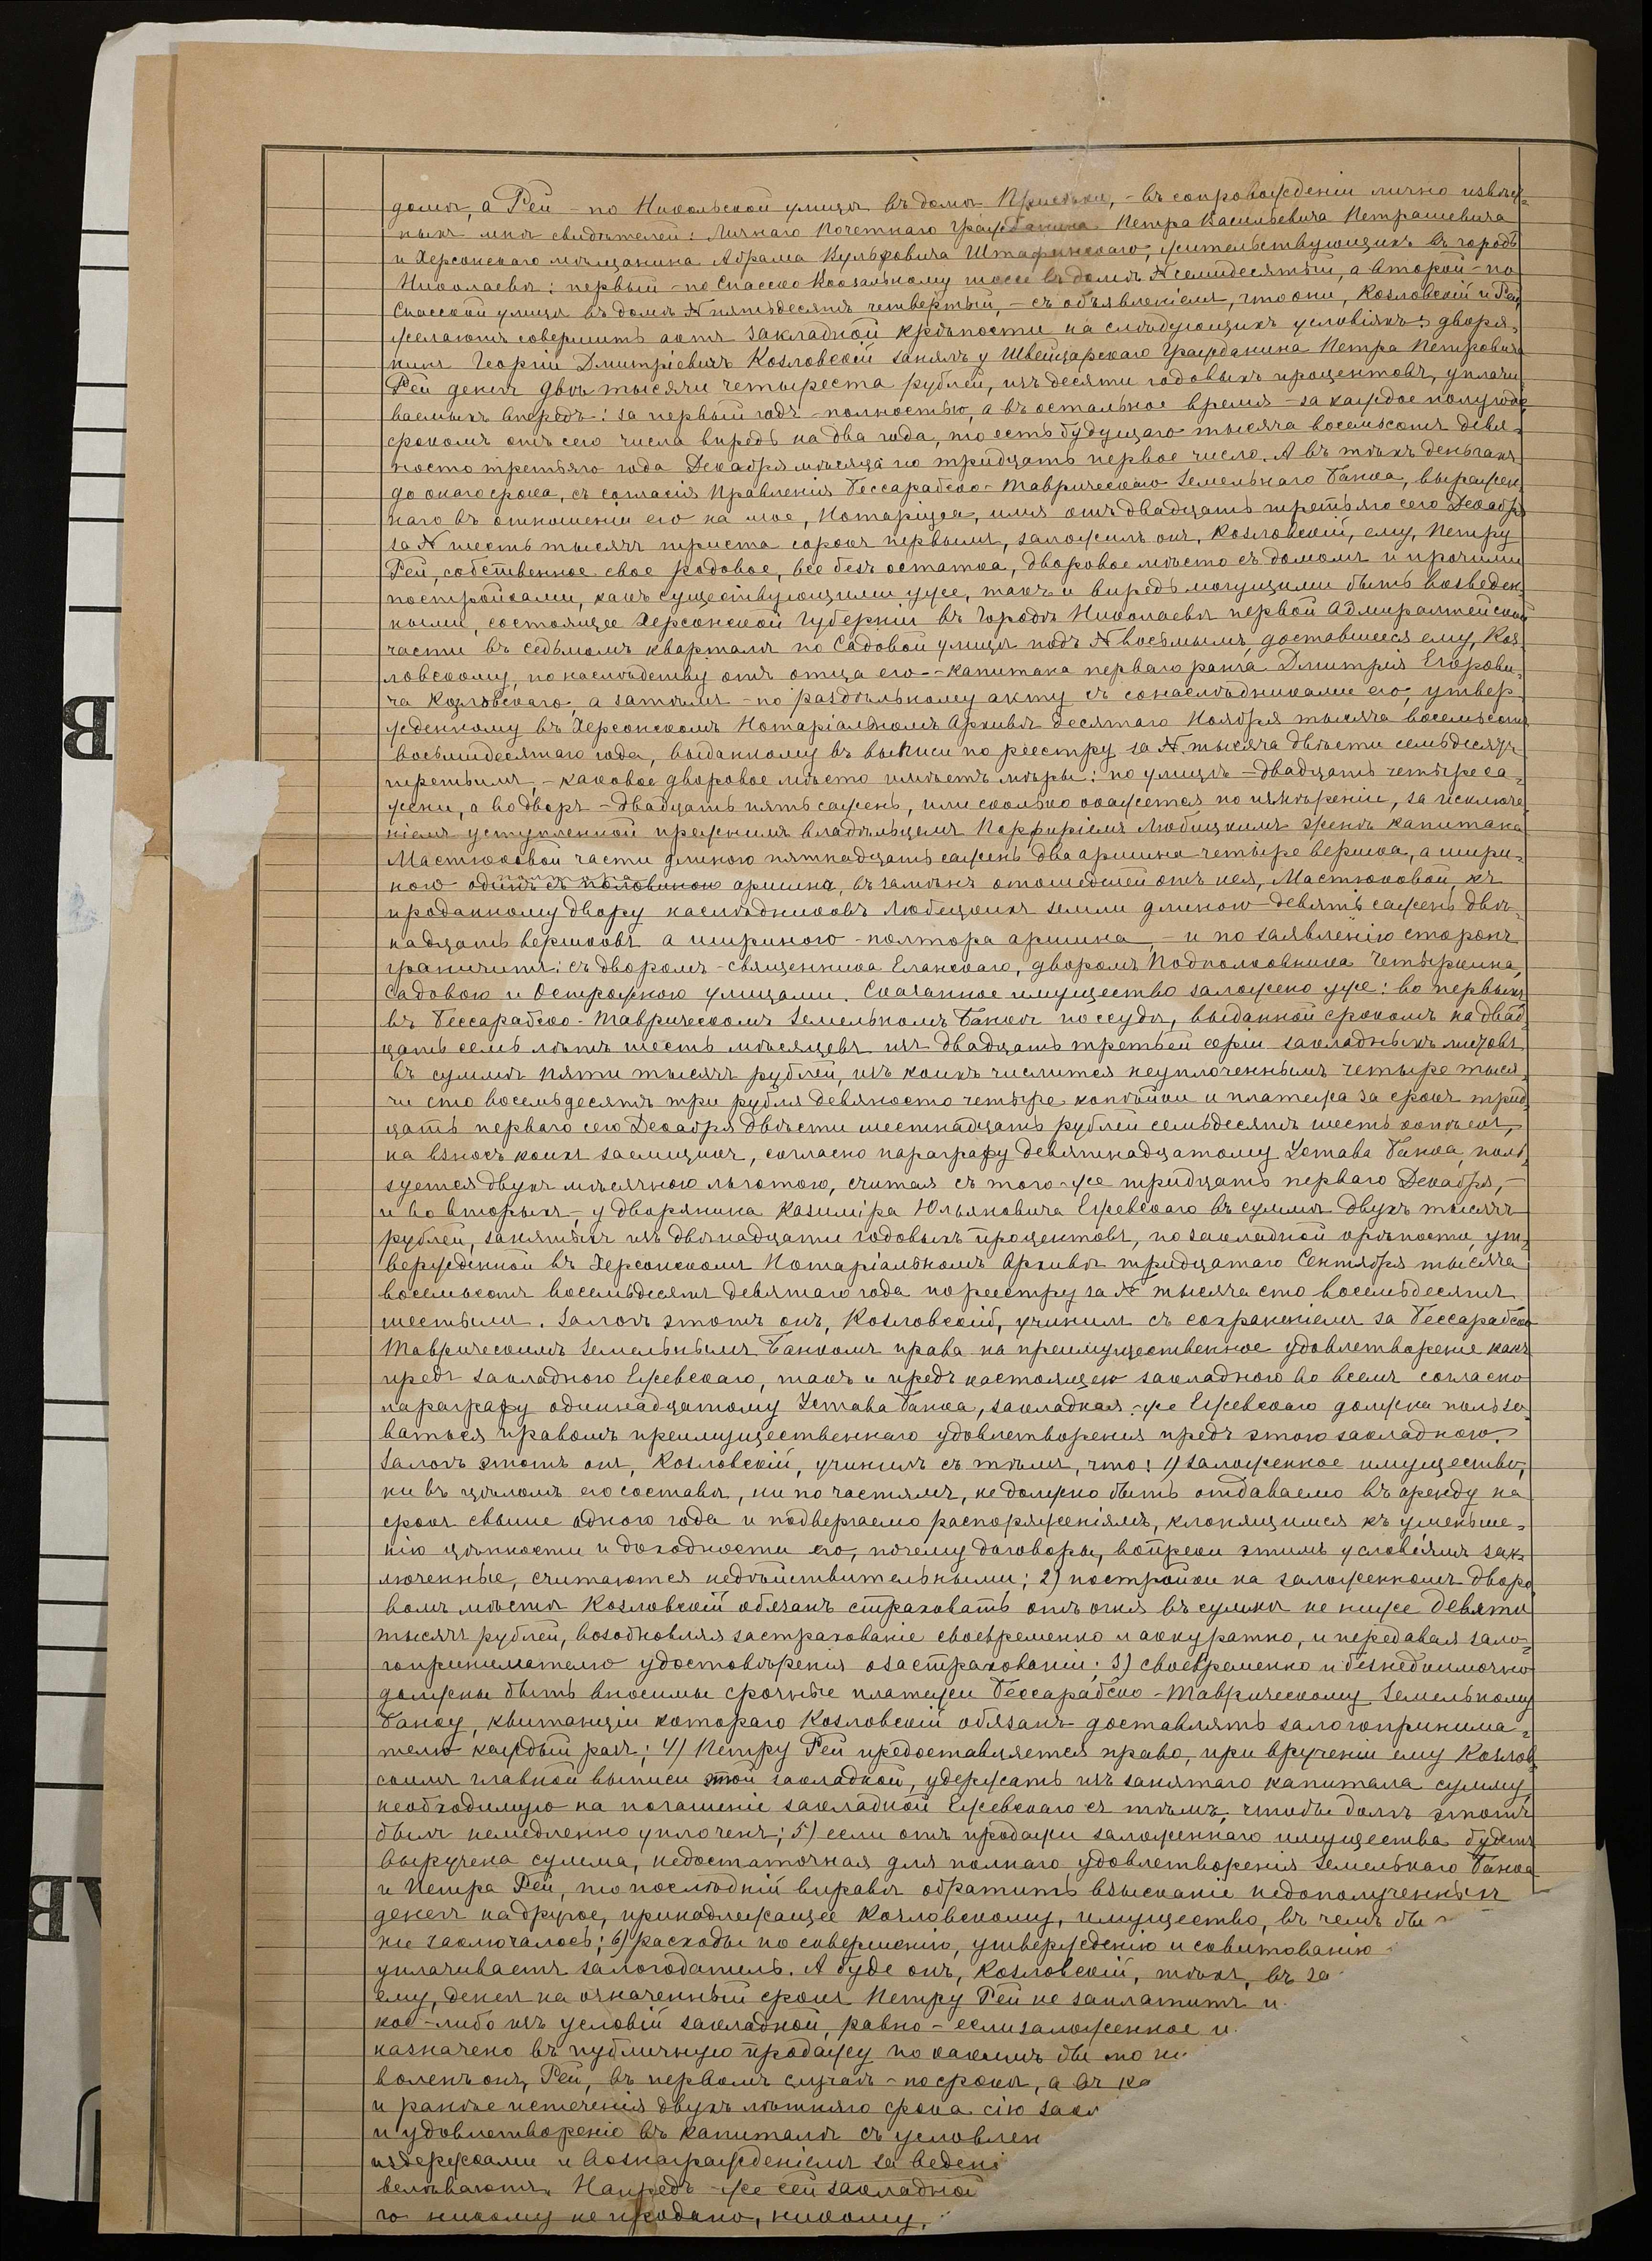 домѣ, а Рей - по Никольской улицѣ въ домѣ, - въ сопровожденіи лично извѣст-
ныхъ мнѣ свидѣтелей: Личнаго Почетнаго Гражданина Петра Васильевича Петрашевича
и Херсонскаго мѣщанина Абрама Вульфовича, жительствующихъ въ городѣ
Николаевѣ: первый - по Спасско Вокзальному шоссе въ домѣ № семидесятый, а второй - по
Спасской улицѣ въ домѣ № пятьдесятъ четвертый, - съ объявленіемъ, что они, Козловскій и Рей,
желаютъ совершить актъ закладной крѣпости на слѣдующихъ условіяхъ: дворя-
нинъ Георгій Дмитріевичъ Козловскій занялъ у Швейцарскаго Гражданина Петра Петровича
Рей денегъ двѣ тысячи четыреста рублей, изъ десяти годовыхъ процентовъ, уплачи-
ваемыхъ впередъ: за первый годъ - полностью, а въ остальное время - за каждое полугодіе,
срокомъ отъ сего числа впредь на два года, то есть будущаго тысяча восемьсотъ девя-
носто третьяго года Декабря мѣсяца по тридцать первое число. А въ тѣхъ деньгахъ
до онаго срока, съ согласія Правленія Бессарабско-Таврическаго Земельнаго Банка, выражен-
наго въ отношеніи его на мое, Нотаріуса, имя отъ двадцать третьяго сего Декабря
за № шесть тысячъ триста сорокъ первымъ, заложилъ онъ, Козловскій, ему, Петру
Рей, собственное свое родовое, все безъ остатка, дворовое мѣсто съ домомъ и прочими
постройками, какъ существующими уже, такъ и впредь могущими быть возведен-
ными, состоящее Херсонской Губерніи въ Городѣ Николаевѣ первой Адмиралтейской
части въ седьмомъ кварталѣ по Садовой улицѣ подъ № восьмымъ, доставшееся ему, Коз-
ловскому, по наслѣдству отъ отца его - капитана перваго ранга Дмитрія Егорови-
ча Козловскаго, а затѣмъ - по раздѣльному акту съ сонаслѣдниками его, утвер-
жденному въ Херсонскомъ Нотаріальномъ Архивѣ десятаго Ноября тысяча восемьсотъ
восьмидесятаго года, выданному въ выписи по реестру за № тысяча двѣсти семьдесятъ
третьимъ, - каковое дворовое мѣсто имѣетъ мѣры: по улицѣ - двадцать четыре са-
жени, а во дворъ - двадцать пять сажень, или сколько окажется по измѣреніи, за исключе-
ніемъ уступленной прежнимъ владѣльцемъ Порфиріемъ Любицкимъ женѣ капитана
Мастюковой части длиною пятнадцать сажень два аршина четыре вершка, а шири-
ною одинъ съ половиною аршина, въ замѣнъ отошедшей отъ нея, Мастюковой, къ
проданному двору наслѣдниковъ Любицкихъ земли длиною девять сажень двѣ-
надцать вершковъ а шириною - полтора аршина, - и по заявленію сторонъ
граничитъ: съ дворомъ - священника Еланскаго, дворомъ Подполковника Четыркина,
Садовою и Острожною улицами. Сказанное имущество заложено уже: во первыхъ,
въ Бессарабско-Таврическомъ Земельномъ Банкѣ по ссудѣ, выданной срокомъ на двад-
цать семь лѣтъ шесть мѣсяцевъ изъ двадцать третьей серіи закладныхъ листовъ
въ суммѣ пяти тысячъ рублей, изъ коихъ числится неуплоченнымъ четыре тыся-
чи сто восемьдесятъ три рубля девяносто четыре копѣйки и платежа за срокъ трид-
цать перваго сего Декабря двѣсти шестнадцать рублей семьдесятъ шесть копѣекъ,
на взносъ коихъ заемщикъ, согласно параграфу девятнадцатому Устава Банка, поль-
зуется двухъ мѣсячною льготою, считая съ того-же тридцать перваго Декабря, -
и во вторыхъ, у дворянина Казиміра Юльяновича Ежевскаго въ суммѣ двухъ тысячъ
рублей, занятыхъ изъ двѣнадцати годовыхъ процентовъ, по закладной крѣпости, ут-
вержденной въ Херсонскомъ Нотаріальномъ Архивѣ тридцатаго Сентября тысяча
восемьсотъ восемьдесятъ девятаго года по реестру за № тысяча сто восемьдесятъ
шестымъ. Залогъ этотъ онъ, Козловскій, учинилъ съ сохраненіемъ за Бессарабско-
Таврическимъ Земельнымъ Банкомъ права на преимущественное удовлетвореніе какъ
предъ закладною Ежевскаго, такъ и предъ настоящею закладною во всемъ согласно
параграфу одиннадцатому Устава Банка, закладная-же Ежевскаго должна пользо-
ваться правомъ преимущественнаго удовлетворенія предъ этою закладною.
Залогъ этотъ онъ, Козловскій, учинилъ съ тѣмъ, что: 1) заложенное имущество,
ни въ цѣломъ его составѣ, ни по частямъ, не должно быть отдаваемо въ аренду на
срокъ свыше одного года и подвергаемо распоряженіямъ, клонящимся къ уменьше-
нію цѣнности и доходности его, почему договоры, вопреки этимъ условіямъ зак-
люченные, считаются недѣйствительными; 2) постройки на заложенномъ дворо-
вомъ мѣстѣ Козловскій обязанъ страховать отъ огня въ суммѣ не ниже девяти
тысячъ рублей, возобновляя застрахованіе своевременно и аккуратно, и передавая зало-
гопринимателю удостовѣренія о застрахованіи; 3) своевременно и безнедоимочно
должны быть вносимы срочные платежи Бессарабско-Таврическому Земельному
Банку, квитанціи котораго Козловскій обязанъ доставлять залогопринима-
телю каждый разъ; 4) Петру Рей предоставляется право, при врученіи ему Козлов-
скимъ главной выписи этой закладной, удержать изъ занятаго капитала сумму,
необходимую на погашеніе закладной Ежевскаго съ тѣмъ, чтобы долгъ этотъ
былъ немедленно уплоченъ; 5) если отъ продажи заложеннаго имущества будетъ
выручена сумма, недостаточная для полнаго удовлетворенія Земельнаго Банка
и Петра Рей, то послѣдній вправѣ обратить взысканіе недополученныхъ
денегъ на другое, принадлежащее Козловскому, имущество, въ чемъ бы
не заключалось; 6) расходы по совершенію, утвержденію и совитованію
уплачиваетъ залогодатель. А буде онъ, Козловскій, тѣхъ, въ за
ему, денегъ на означенный срокъ Петру Рей не заплатитъ и
кое-либо изъ условій закладной, равно - если заложенное и
назначено въ публичную продажу по какимъ бы то ни
воленъ онъ, Рей, въ первомъ случаѣ - по срокѣ, а въ ка
и ранѣе истеченія двухъ лѣтняго срока сію закл
и удовлетвореніе въ капиталѣ съ условлен
издержками и вознагражденіемъ за веденi
велѣваютъ. Напредъ-же сей закладной
го никому не продано, никому,